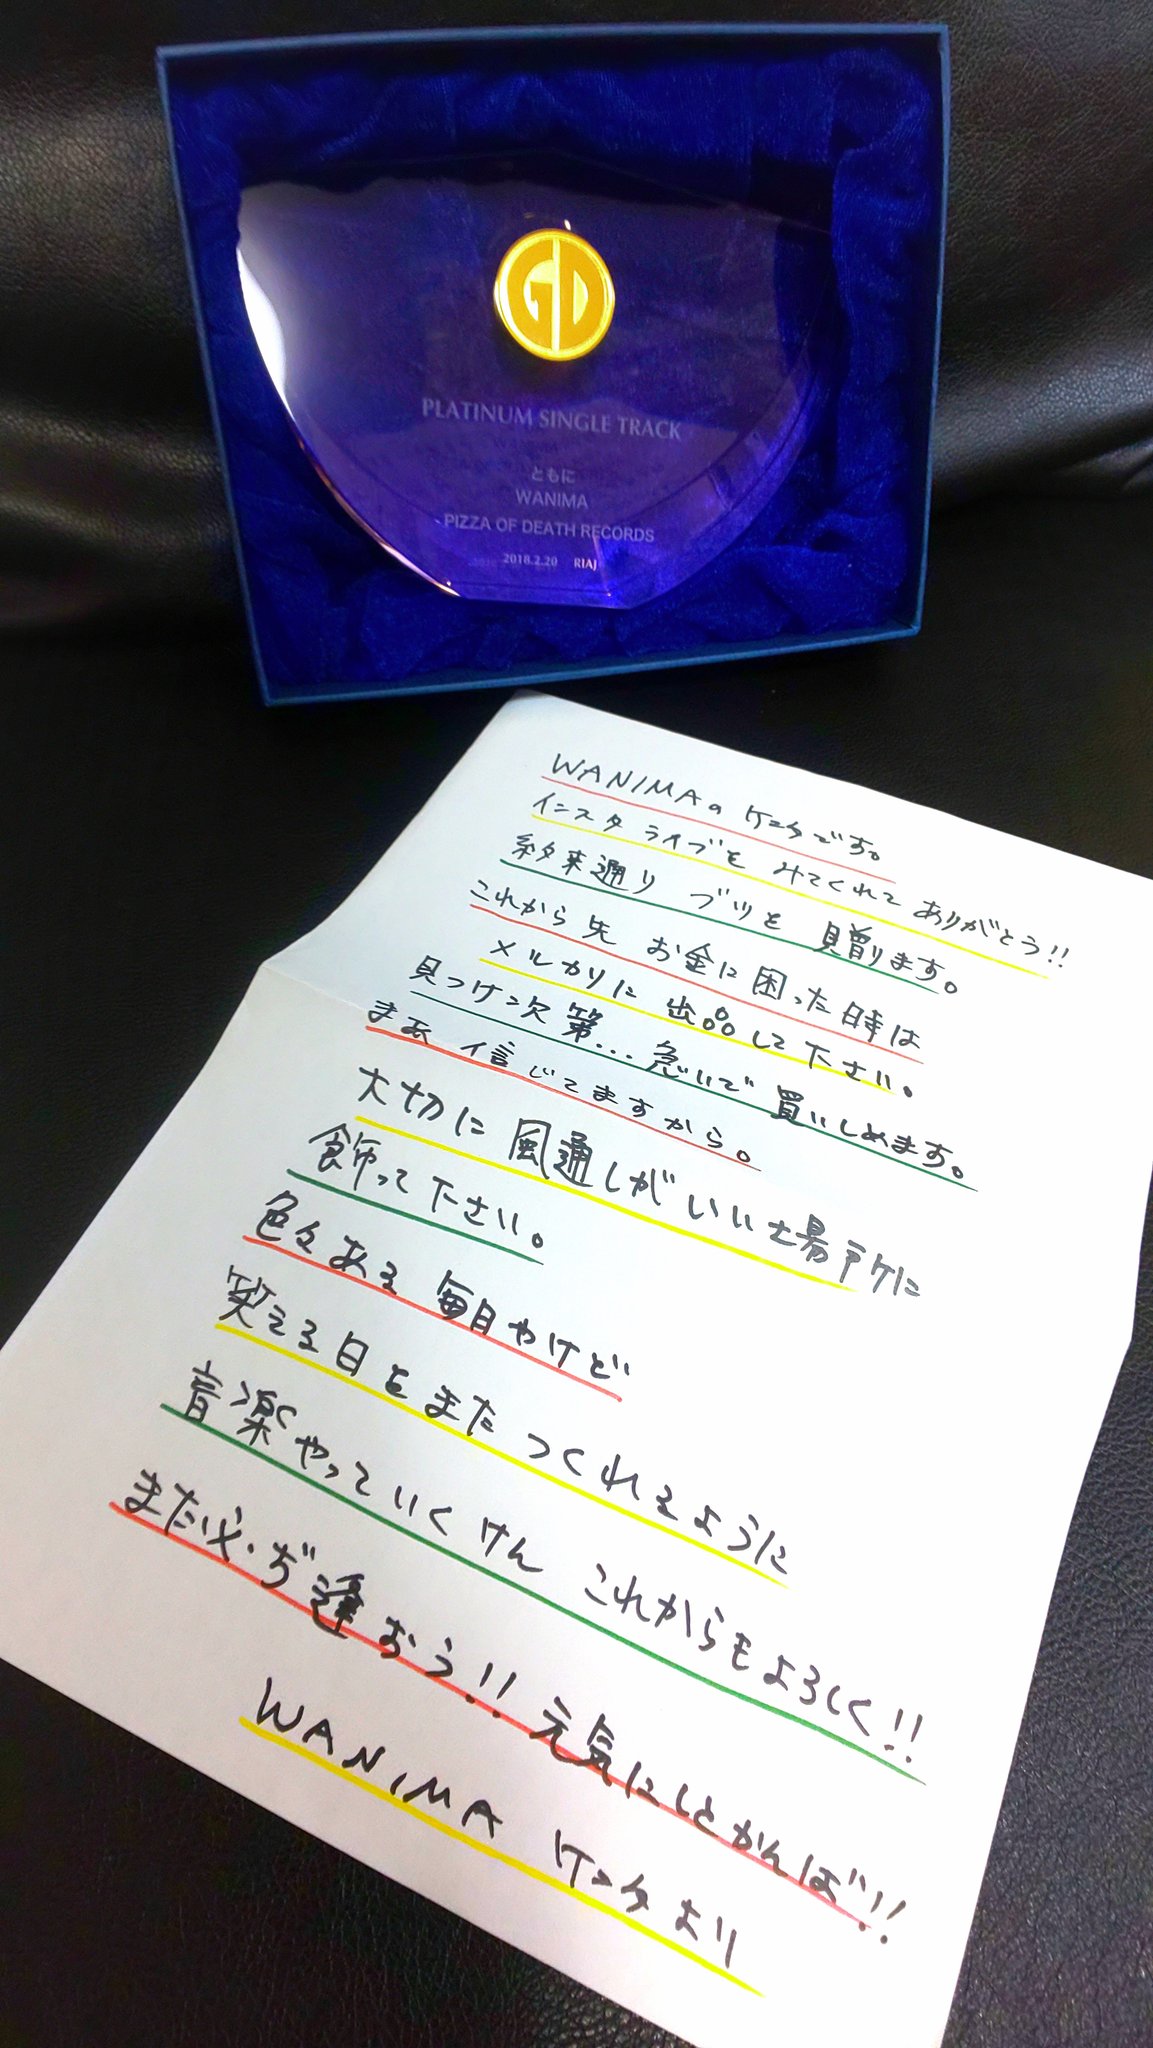 GD
PLATINUM SINGLE TRACK
ともに
WANIMA
PIZZA OF DEATH RECORDS
2018.2.20 RIAJ
WANIMAの ケンタです。
インスタ ライブを みてくれて ありがとう!!
約束通り ブツを 贈ります。
これから先 お金に困った時は
メルカリに 出品して下さい。
見つけ次第... 急いで 買いしめます。
まぁ 信じてますから。
大切に 風通しが いい場所に
飾って下さい。
色々ある 毎日やけど
笑える日を また つくれるように
音楽やっていくけん これからもよろしく!!
また必ず逢おう!! 元気にしとかんば!!
WANIMA ケンタより